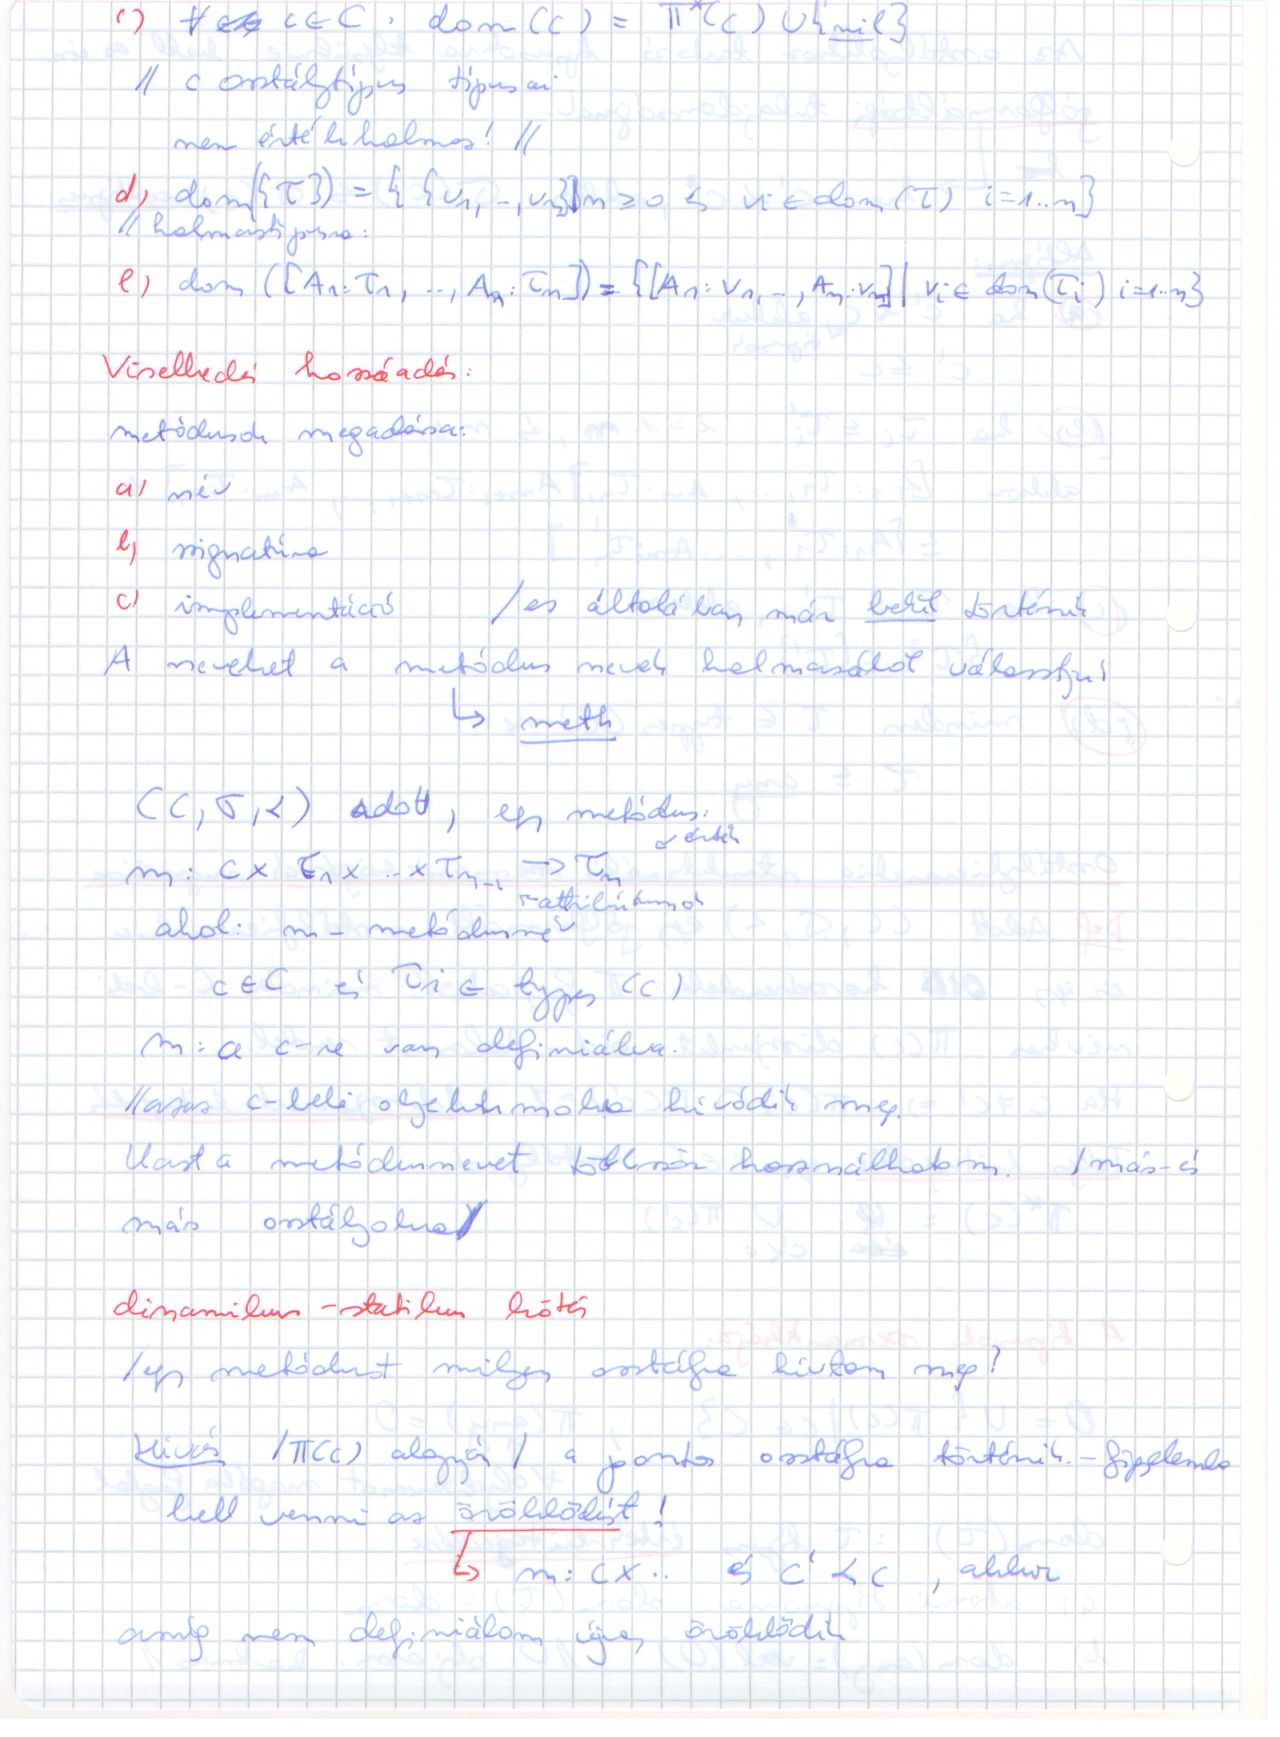 c) ∀ c ∈ C . dom(c) = π*(c) ∪ {nil}
// c osztálytípus típusai
nem értékhalmaz! //
d) dom({τ}) = { {v₁, .., vₙ} | n ≥ 0 és vᵢ ∈ dom(τ) i=1..n}
// halmaztípusra:
e) dom([A₁:τ₁, .., Aₙ:τₙ]) = {[A₁:v₁, .., Aₙ:vₙ] | vᵢ ∈ dom(τᵢ) i=1..n}
Viselkedés hozzáadás:
metódusok megadása:
a) név
b) signatúra
c) implementáció /ez általában már belül történik
A neveket a metódus nevek halmazából választjuk
↳ meth
(C, σ, ≺) adott, egy metódus:
↙ érték
m: c × τ₁ × .. × τₙ₋₁ → τₙ
attribútumok
ahol: m – metódusnév
c ∈ C és τᵢ ∈ types(C)
m: a c-re van definiálva.
//azaz c-beli objektumokra hívódik meg.
Uazt a metódusnevet többször használhatom. /más-és
más osztályokra/
dinamikus – statikus kötés
/egy metódust milyen osztályra hívtam meg?
Hívás /π(c) alapján/ a pontos osztályra történik. – figyelembe
kell venni az öröklődést!
↳ m: c × .. és c' ≺ c, akkor
amíg nem definiálom újra, öröklődik